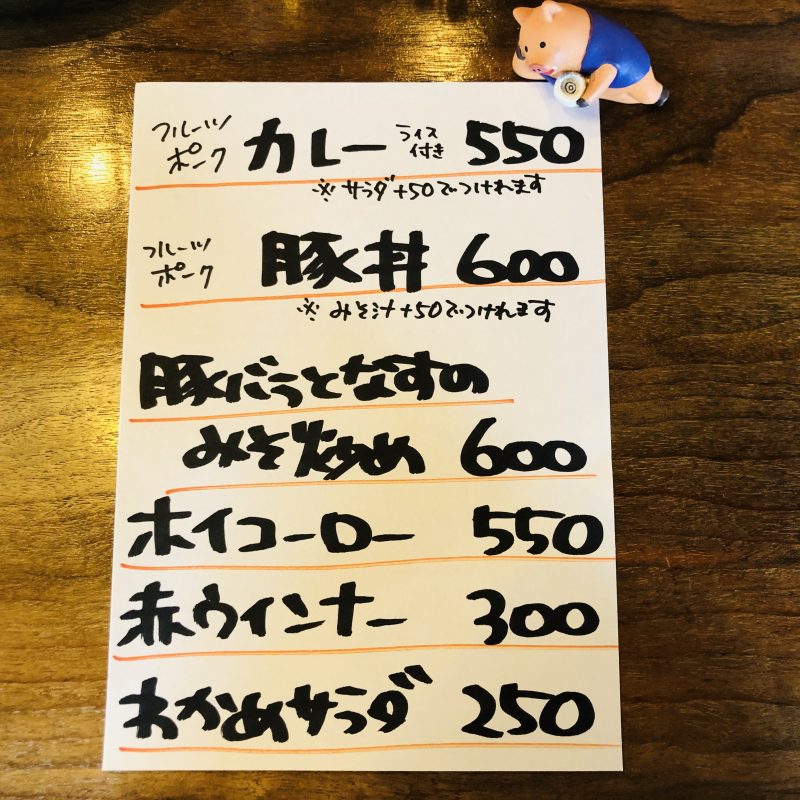 フルーツポーク カレー ライス付き 550
※サラダ+50でつけれます
フルーツポーク 豚丼 600
※みそ汁+50でつけれます
豚バラとなすの
みそ炒め 600
ホイコーロー 550
赤ウインナー 300
わかめサラダ 250